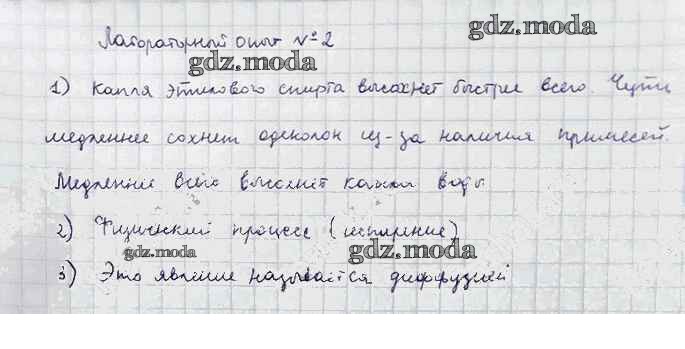 gdz.moda
Лабораторный опыт №2
gdz.moda
1) Капля этилового спирта высохнет быстрее всего. Чуть
медленнее сохнет одеколон из-за наличия примесей.
Медленнее всего высохнет капля воды.
2) Физический процесс (испарение)
gdz.moda gdz.moda
3) Это явление называется диффузией
gdz.moda